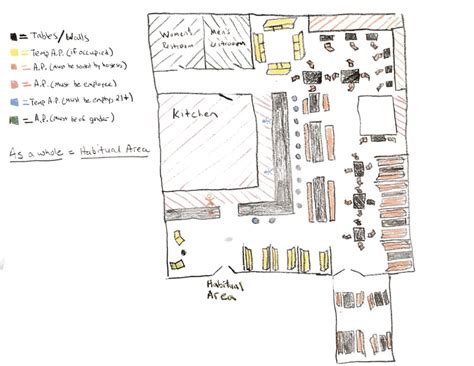 = Tables/Walls
= Temp A.P. (if occupied)
= A.P. (Must be seated by hostess)
= A.P. (Must be employee)
= Temp A.P. (Must be employee 21+)
= A.P. (Must be of gender)
As a whole = Habitual Area
Women's Restroom
Men's Restroom
Kitchen
Habitual
Area